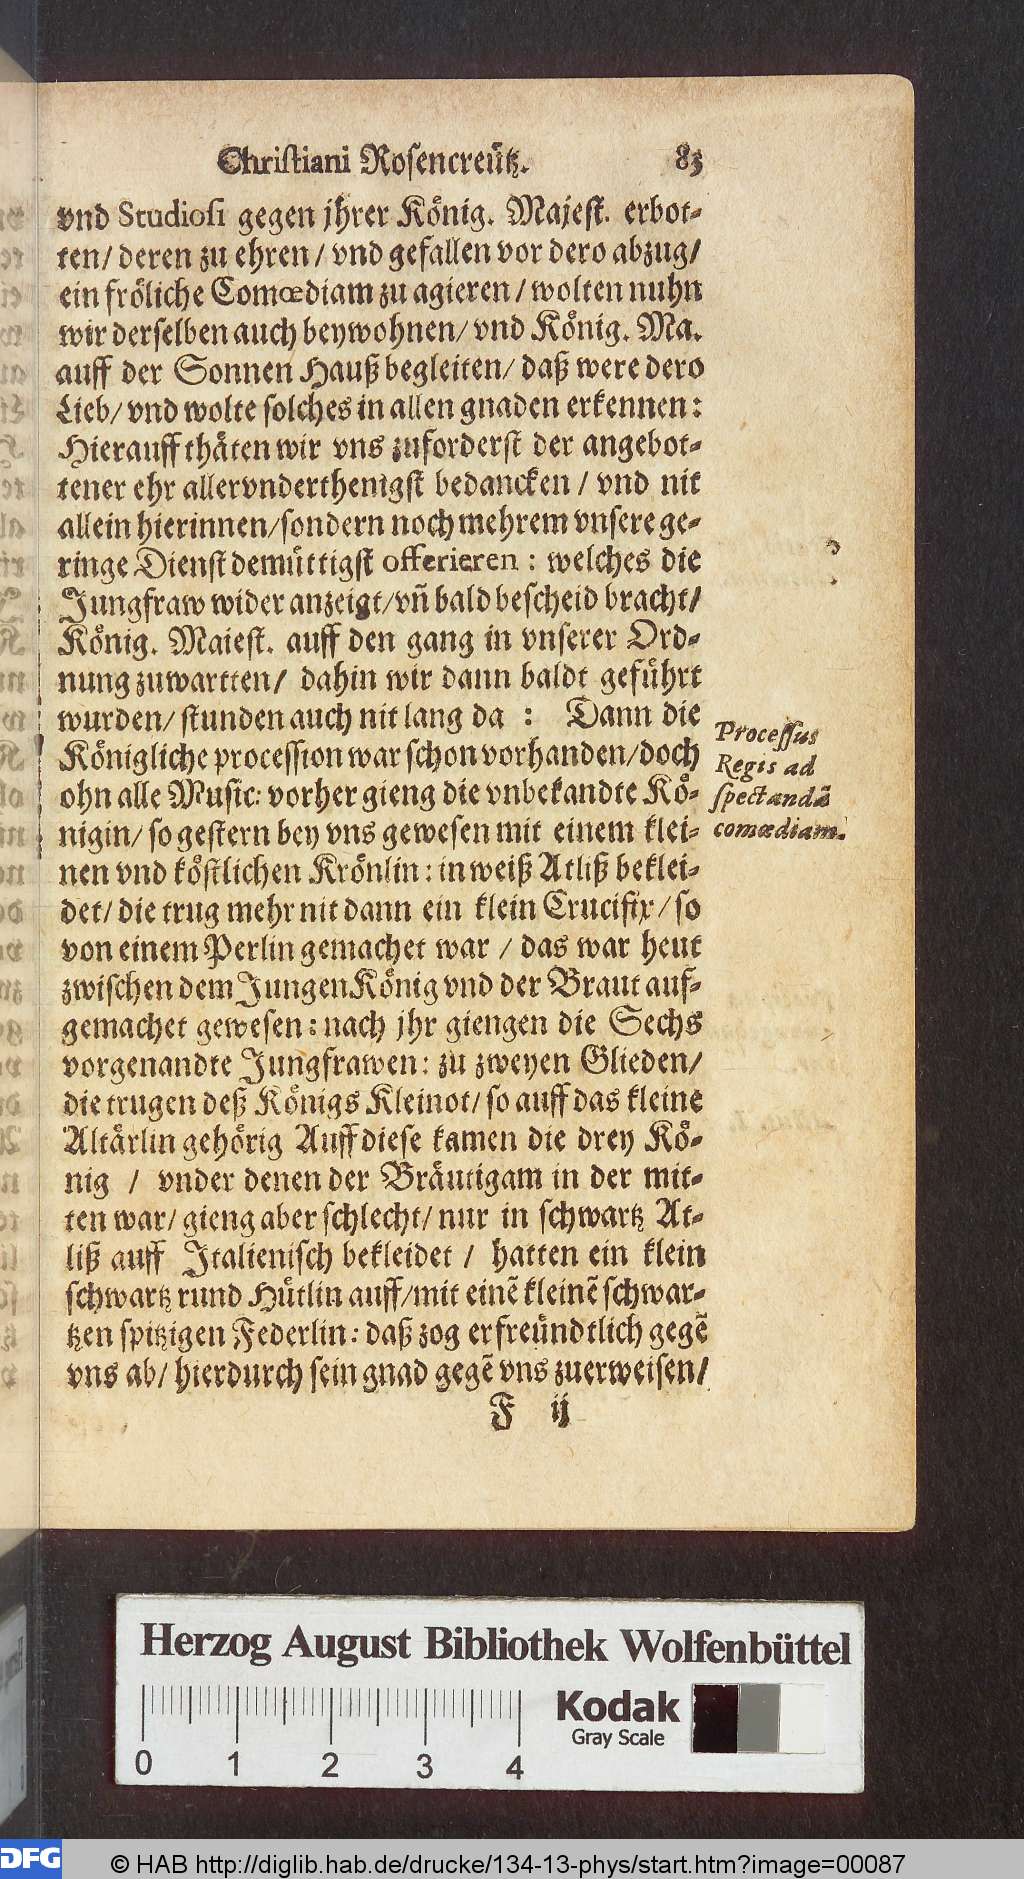 Christiani Rosencreütz. 83
vnd Studiosi gegen jhrer König. Majest. erbot-
ten/ deren zu ehren / vnd gefallen vor dero abzug/
ein fröliche Comœdiam zu agieren / wolten nuhn
wir derselben auch beywohnen/ vnd König. Ma.
auff der Sonnen Hauß begleiten/ daß were dero
Lieb/ vnd wolte solches in allen gnaden erkennen:
Hierauff thäten wir vns zuforderst der angebot-
tener ehr allervnderthenigst bedancken / vnd nit
allein hierinnen/sondern noch mehrem vnsere ge-
ringe Dienst demüttigst offerieren : welches die
Jungfraw wider anzeigt/vñ bald bescheid bracht/
König. Maiest. auff den gang in vnserer Ord-
nung zuwartten/ dahin wir dann baldt geführt
wurden/ stunden auch nit lang da : Dann die
Königliche procession war schon vorhanden/doch
ohn alle Music: vorher gieng die vnbekandte Kö-
nigin/ so gestern bey vns gewesen mit einem klei-
nen vnd köstlichen Krönlin: in weiß Atliß beklei-
det/ die trug mehr nit dann ein klein Crucifix/ so
von einem Perlin gemachet war / das war heut
zwischen dem Jungen König vnd der Braut auf-
gemachet gewesen: nach jhr giengen die Sechs
vorgenandte Jungfrawen: zu zweyen Glieden/
die trugen deß Königs Kleinot/ so auff das kleine
Altärlin gehörig Auff diese kamen die drey Kö-
nig / vnder denen der Bräutigam in der mit-
ten war/ gieng aber schlecht/ nur in schwartz At-
liß auff Italienisch bekleidet / hatten ein klein
schwartz rund Hütlin auff/mit einẽ kleinẽ schwar-
tzen spitzigen Federlin: daß zog er freündtlich gegẽ
vns ab/ hierdurch sein gnad gegẽ vns zuerweisen/
F ij
Processus
Regis ad
spectandã
comœdiam.
Herzog August Bibliothek Wolfenbüttel
0 1 2 3 4
Kodak
Gray Scale
DFG
© HAB http://diglib.hab.de/drucke/134-13-phys/start.htm?image=00087